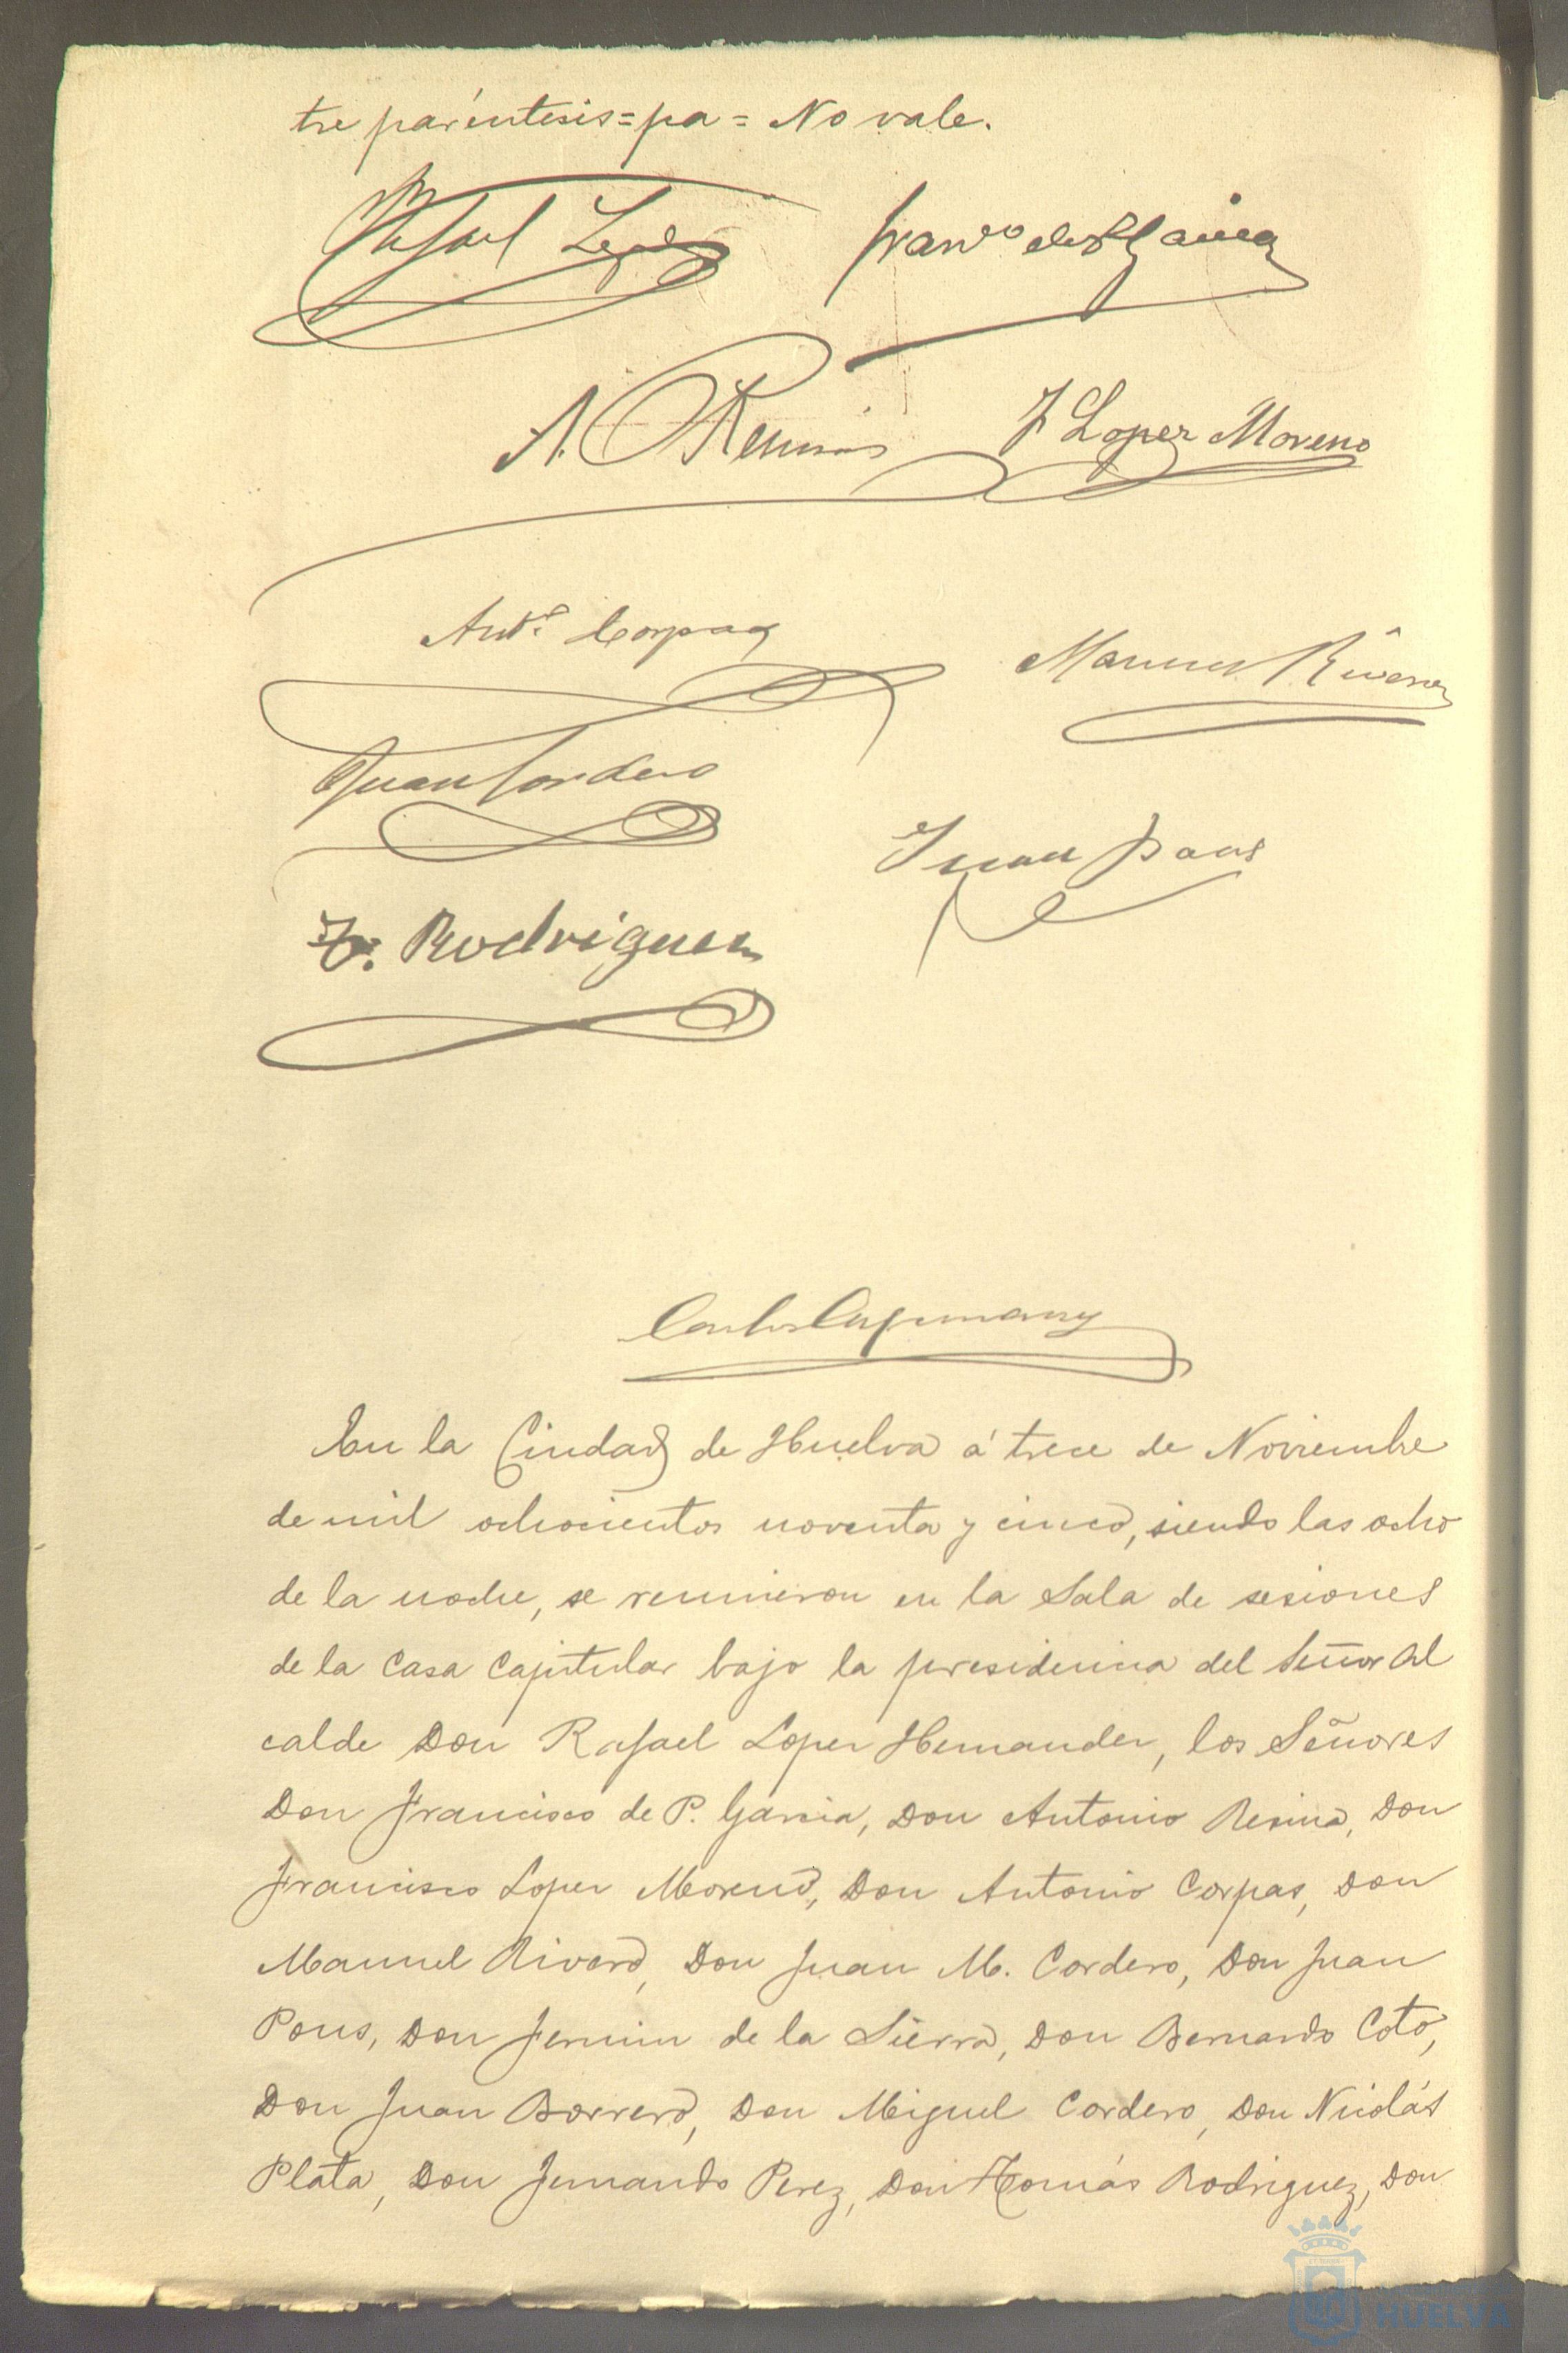 tre paréntesis = pa = No vale.
Rafael Lopez Franco de P. Garcia
A. Resina F Lopez Moreno
Anto. Corpas Manuel Rivero
Juan Cordero
Juan Pons
T. Rodriguez
Carlos Capmany
En la Ciudad de Huelva á trece de Noviembre
de mil ochocientos noventa y cinco, siendo las ocho
de la noche, se reunieron en la Sala de sesiones
de la Casa Capitular bajo la presidencia del Señor Al
calde Don Rafael Lopez Hernandez, los Señores
Don Francisco de P. Garcia, Don Antonio Resina, Don
Francisco Lopez Moreno, Don Antonio Corpas, Don
Manuel Rivero, Don Juan M. Cordero, Don Juan
Pons, Don Fermin de la Sierra, Don Bernardo Coto,
Don Juan Borrero, Don Miguel Cordero, Don Nicolás
Plata, Don Fernando Perez, Don Tomás Rodriguez, Don
HUELVA